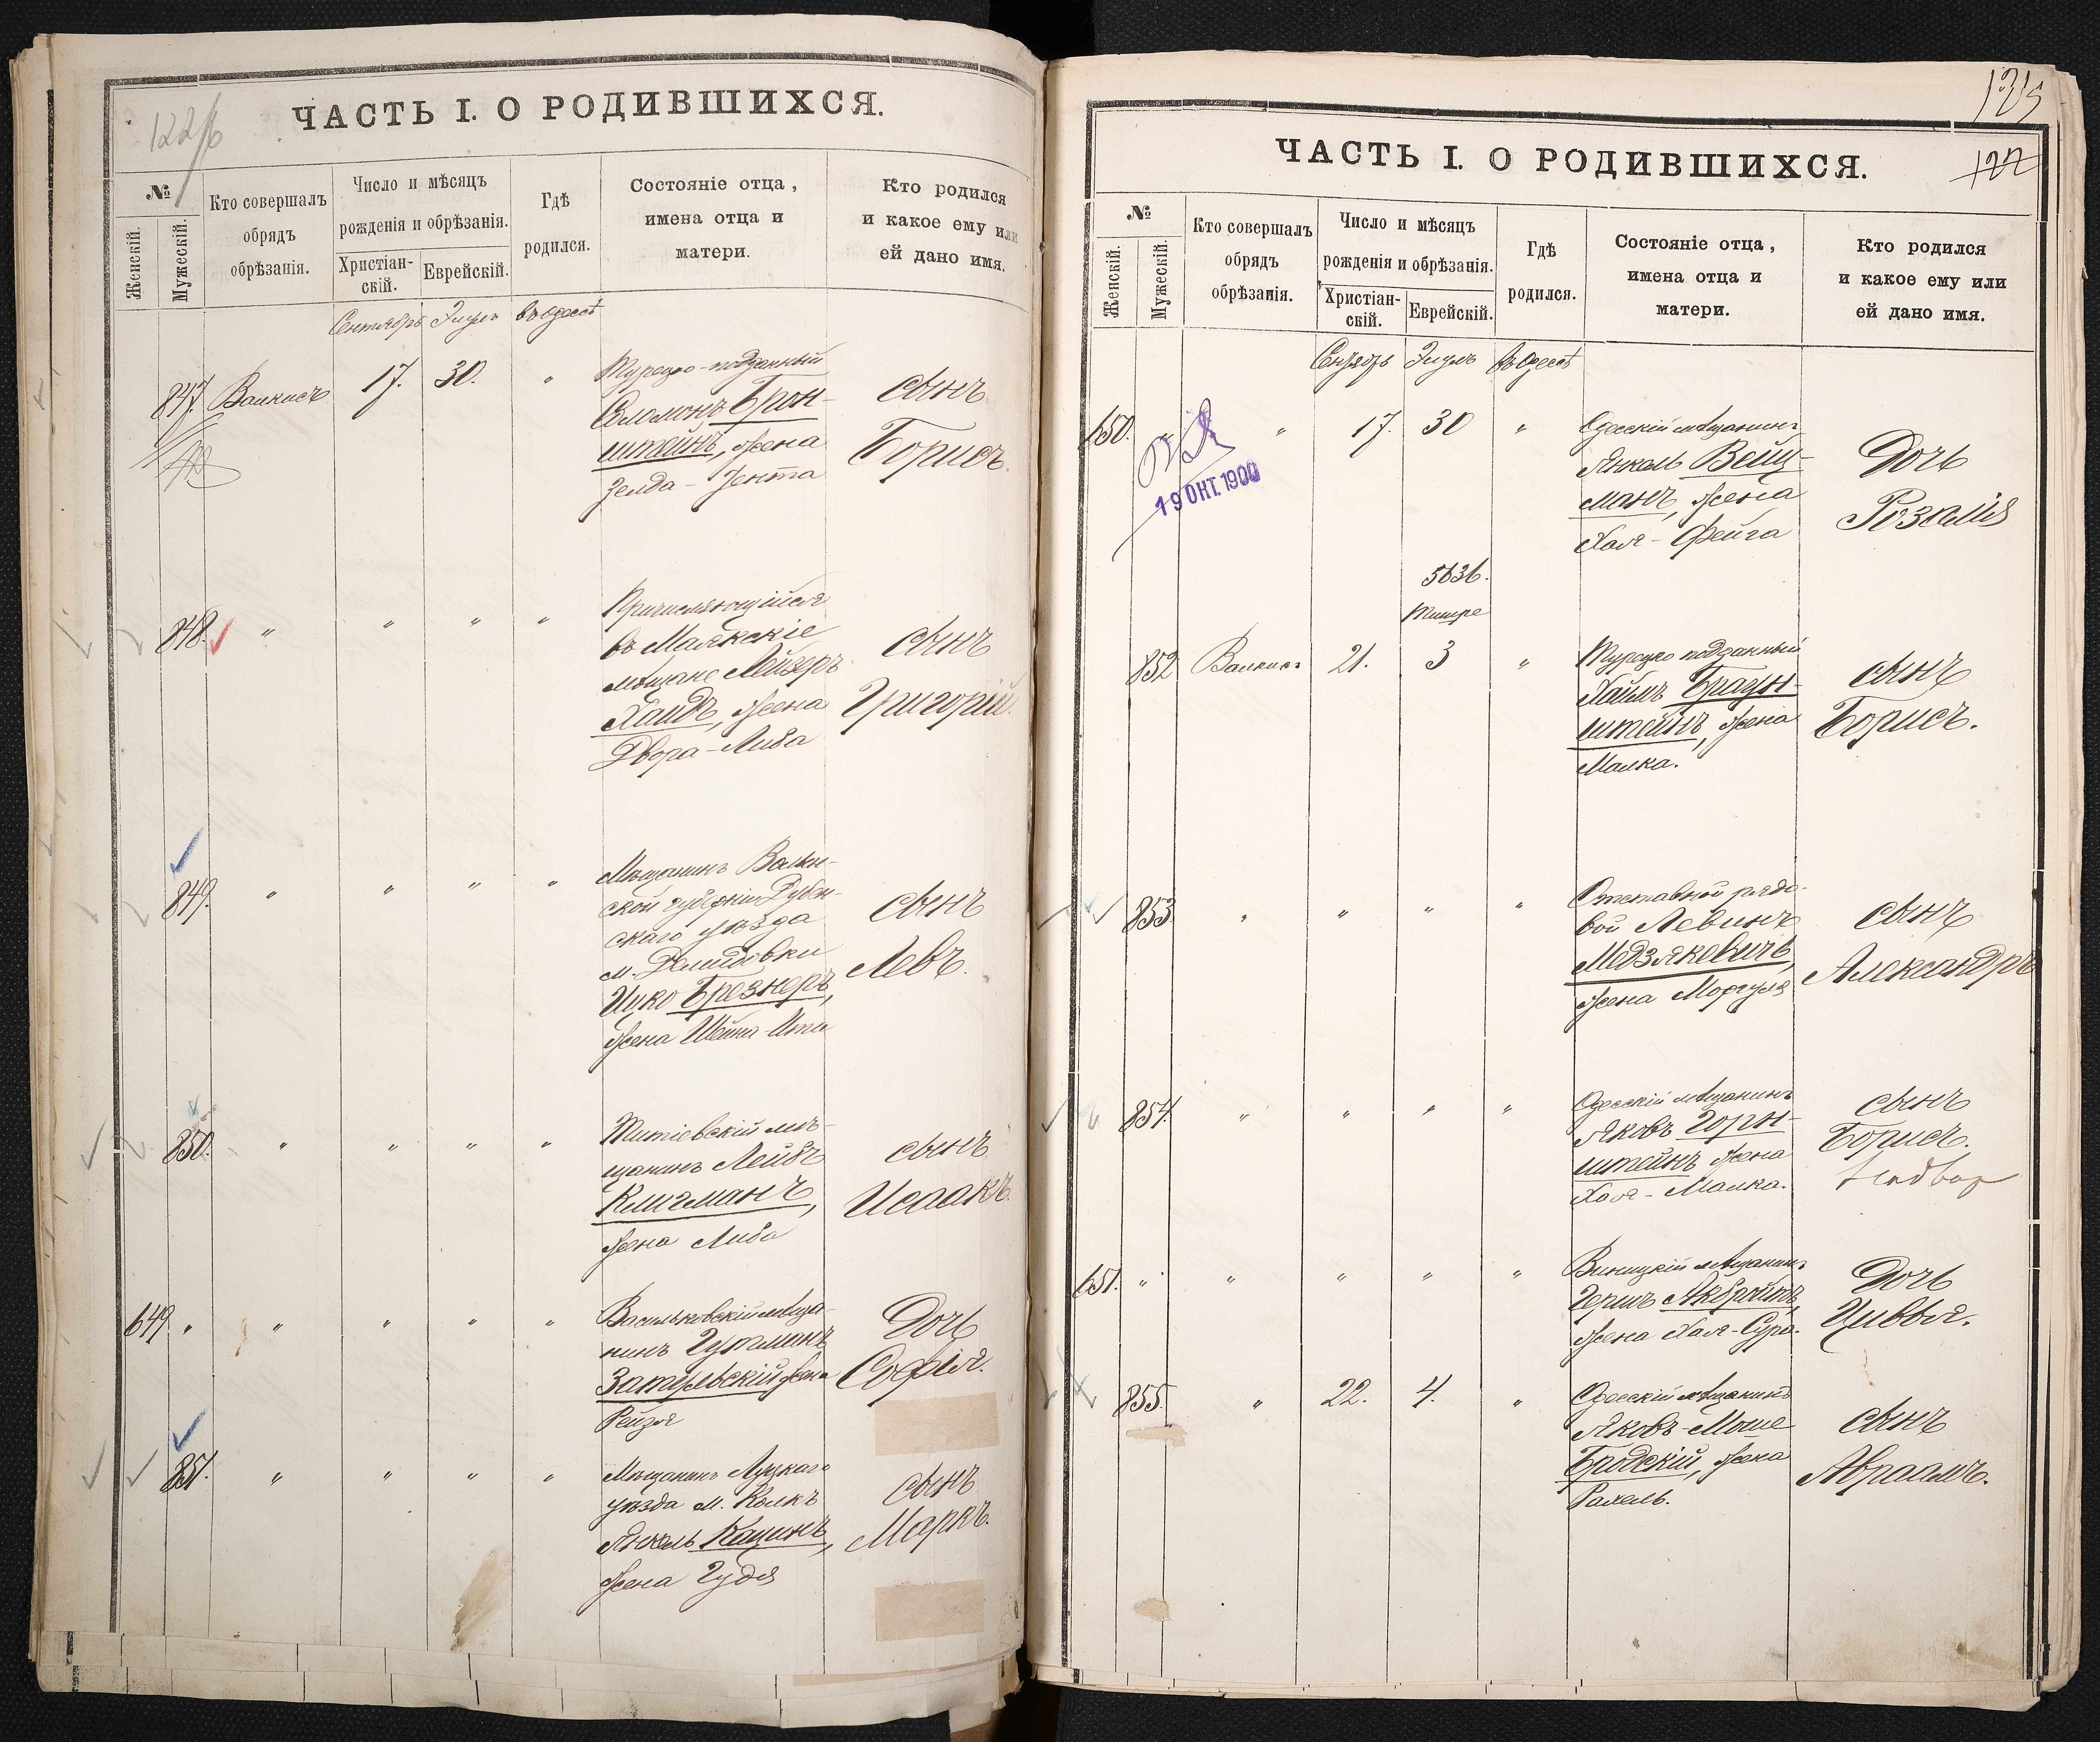 122/б
ЧАСТЬ I. О РОДИВШИХСЯ.
№
Женскій.
Мужескій.
Кто совершалъ
обрядъ
обрѣзанія.
Число и мѣсяцъ
рожденія и обрѣзанія.
Христіан-
скій.
Еврейскій.
Гдѣ
родился.
Состояніе отца,
имена отца и
матери.
Кто родился
и какое ему или
ей дано имя.
Сентябрь Элулъ въ Одессѣ
847. Валкисъ 17. 30. "
Турецко-подданный
Соломонъ Брон-
штейнъ, жена
Зелда-Јента
сынъ
Борисъ.
848. " " " "
Причисляющійся
въ Маякскіе
мѣщане Лейзеръ
Хаидъ, жена
Двора-Либа
сынъ
Григорій.
849. " " " "
Мѣщанинъ Волын-
ской губерніи Дубен-
скаго уѣзда
м. Демидовки
Ицко Брезнеръ,
жена Шейна-Ита
сынъ
Левъ.
850. " " " "
Титіевскій мѣ-
щанинъ Лейбъ
Клигманъ,
жена Либа
сынъ
Исаакъ.
649 " " " " "
Васильковскій мѣща-
нинъ
Затульскій жена
Рейзя
Дочь
Софія.
851. " " " "
Мѣщанинъ Луцкаго
уѣзда м. Колкъ
Янкель Кацинъ,
жена Гудя
сынъ
Маркъ.
125
122
ЧАСТЬ I. О РОДИВШИХСЯ.
№
Женскій.
Мужескій.
Кто совершалъ
обрядъ
обрѣзанія.
Число и мѣсяцъ
рожденія и обрѣзанія.
Христіан-
скій.
Еврейскій.
Гдѣ
родился.
Состояніе отца,
имена отца и
матери.
Кто родился
и какое ему или
ей дано имя.
Сентябрь Элулъ въ Одессѣ
650. " " 17. 30 "
19 ОКТ. 1900
Одесскій мѣщанинъ
Янкель Вейц-
манъ, жена
Хая-Фейга
Дочь
Розалія
5636.
Тишре
852 Валкисъ 21. 3 "
Турецко подданный
Хаимъ Браун-
штейнъ, жена
Малка.
сынъ
Борисъ.
853 " " " "
Отставной рядо-
вой Левинъ
Медзяковичъ,
жена Моргуля
сынъ
Александръ
854. " " " "
Одесскій мѣщанинъ
Яковъ Горн-
штейнъ жена
Хая-Малка.
сынъ
Борисъ.
651. " " " " "
Виницкій мѣщанинъ
Гершъ Акбройтъ,
жена Хая-Сура.
Дочь
Цивья.
855. " 22. 4. "
Одесскій мѣщанинъ
Яковъ-Моше
Бродскій, жена
Рахель.
сынъ
Авраамъ.